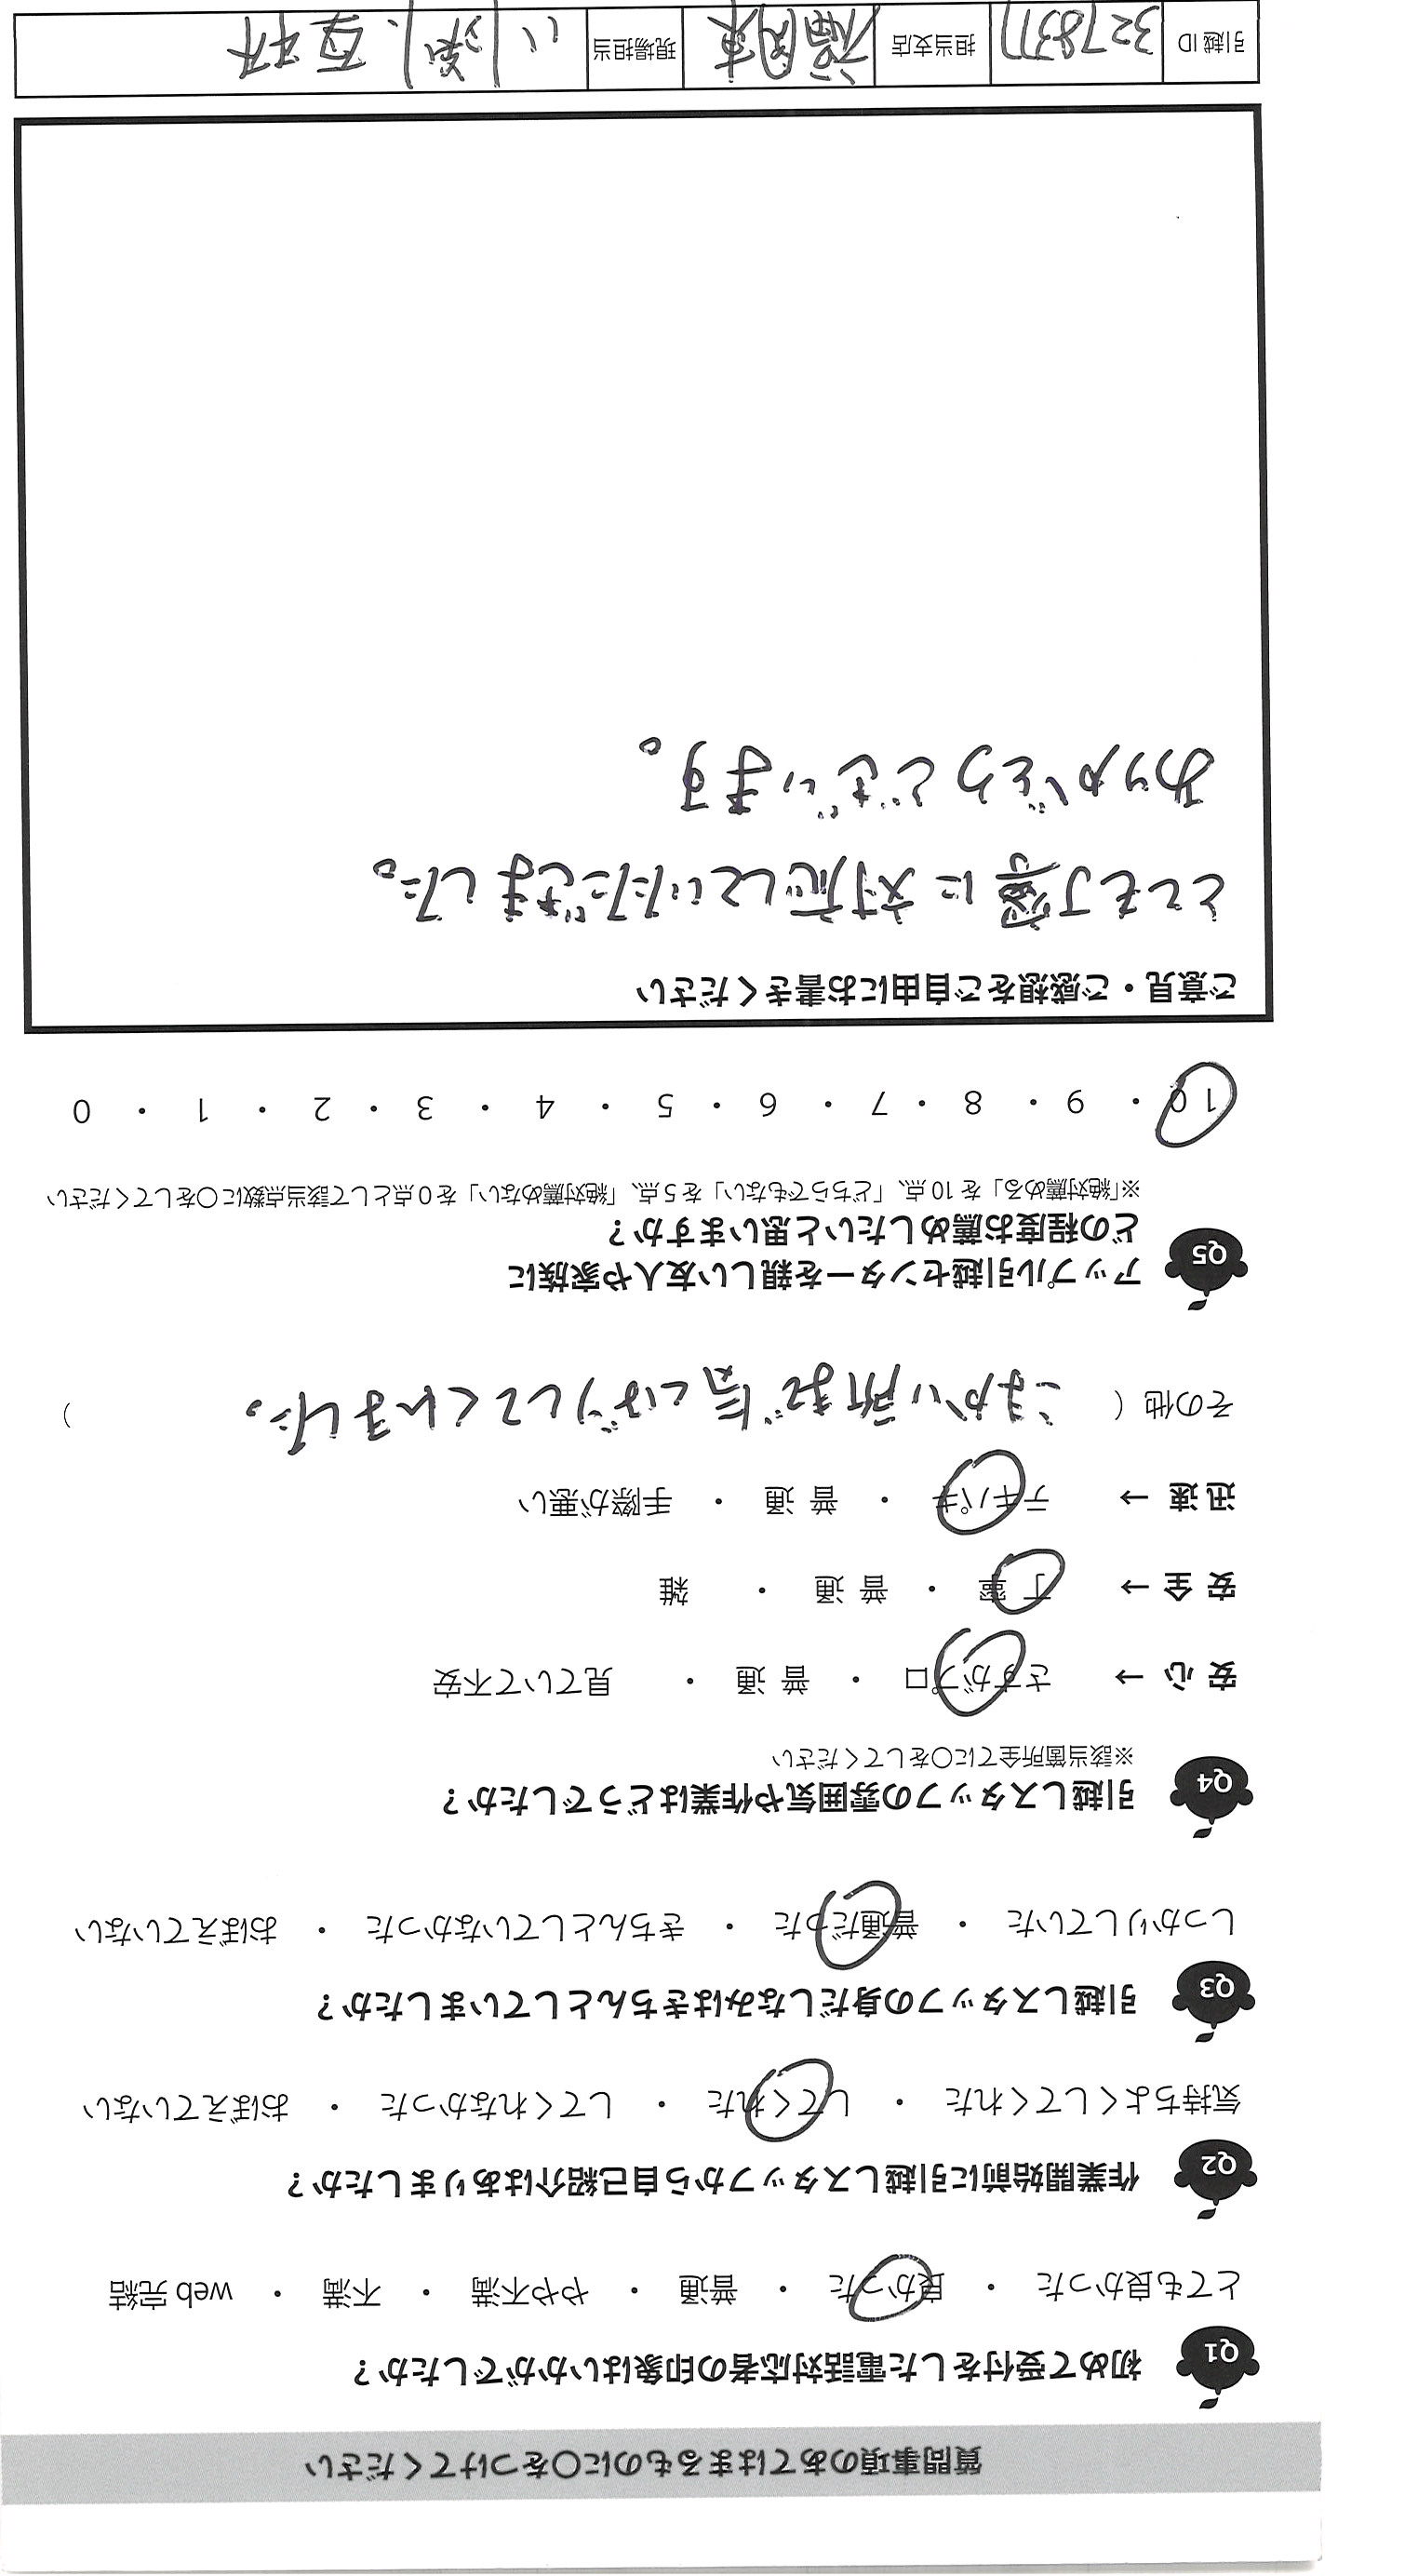 質問事項のあてはまるものに〇をつけてください
Q1 初めて受付をした電話対応者の印象はいかがでしたか?
とても良かった ・ 良かった ・ 普通 ・ やや不満 ・ 不満 ・ web 完結
Q2 作業開始前に引越しスタッフから自己紹介はありましたか?
気持ちよくしてくれた ・ してくれた ・ してくれなかった ・ おぼえていない
Q3 引越しスタッフの身だしなみはきちんとしていましたか?
しっかりしていた ・ 普通だった ・ きちんとしていなかった ・ おぼえていない
Q4 引越しスタッフの雰囲気や作業はどうでしたか?
※該当箇所全てに〇をしてください
安心 → さすがプロ ・ 普通 ・ 見ていて不安
安全 → 丁寧 ・ 普通 ・ 雑
迅速 → テキパキ ・ 普通 ・ 手際が悪い
その他 ( こまかい所まで気くばりしてくれました。 )
Q5 アップル引越センターを親しい友人や家族に
どの程度お薦めしたいと思いますか?
※「絶対薦める」を 10 点、「どちらでもない」を 5 点、「絶対薦めない」を 0 点として該当点数に〇をしてください
10 ・ 9 ・ 8 ・ 7 ・ 6 ・ 5 ・ 4 ・ 3 ・ 2 ・ 1 ・ 0
ご意見・ご感想をご自由にお書きください
とても丁寧に対応していただきました。
ありがとうございます。
引越 ID 担当支店 福岡東 現場担当